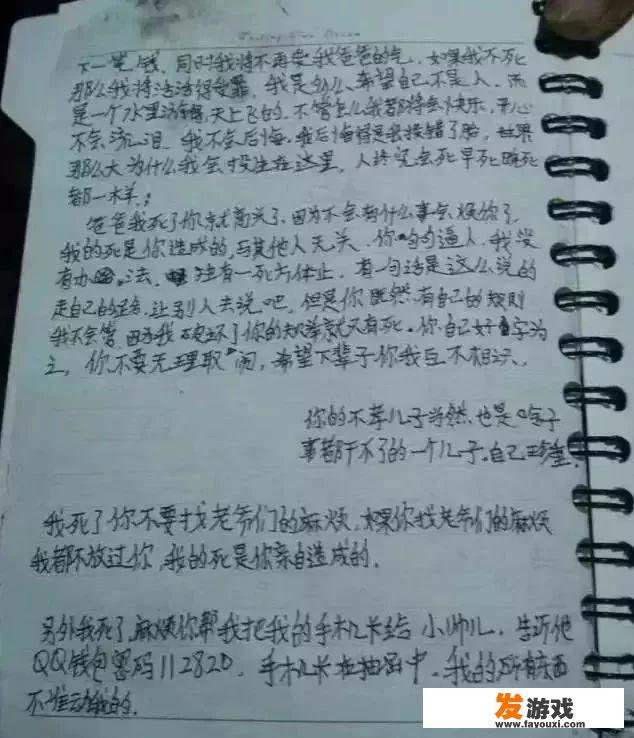 下一笔钱，同时我将不再受我爸爸的气，如果我不死
那么我将活活得受罪，我是多么希望自己不是人，而
是一个水里游得，天上飞的，不管怎么我都将会快乐，开心
不会流泪，我不会后悔，我后悔得是我投错了胎，世界
那么大为什么我会投生在这里，人终究会死早死晚死
都一样，；
爸爸我死了你就高兴了，因为不会有什么事会烦你了，
我的死是你造成的，与其他人无关，你句句逼人，我没
有办法，唯有一死方休止，有一句话是这么说的
走自己的路，让别人去说吧，但是你既然有自己的规则
我不会管，因为我破坏了你的规举就只有死。你自己好字为
之，你不要无理取闹，希望下辈子你我互不相识，
你的不孝儿子当然也是啥子
事都干不了的一个儿子，自己珍重，
我死了你不要找老爷们的麻烦，如果你找老爷们的麻烦
我都不放过你，我的死是你亲自造成的，
另外我死了，麻烦你帮我把我的手机卡给小帅儿，告诉他
QQ钱包密码112820，手机卡在抽屉中，我的所有东西
不准动我的，
发游戏
www.fayouxi.com